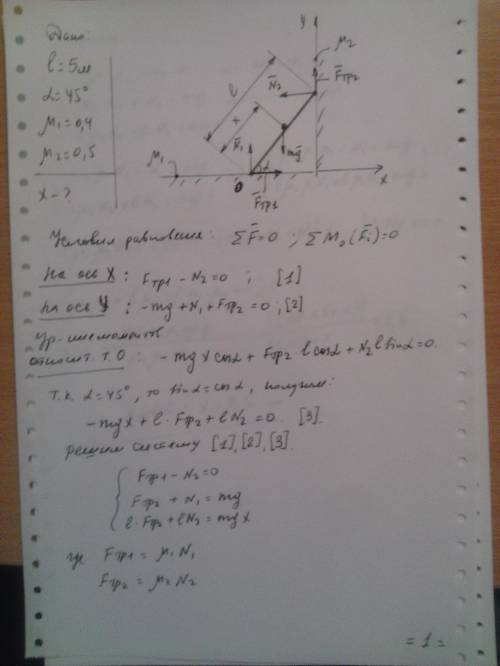 Дано:
l = 5м
α = 45°
μ₁ = 0,4
μ₂ = 0,5
x - ?
y
μ₂
F̄тр₂
N̄₂
l
x
N̄₁
mḡ
μ₁
α
O
F̄тр₁
x
Условия равновесия: ΣF̄=0 ; ΣM₀(F̄ᵢ)=0
На ось X : Fтр₁ - N₂ = 0 ; [1]
На ось Y : -mg + N₁ + Fтр₂ = 0 ; [2]
Ур-ние моментов
относит. т. О : - mg x cosα + Fтр₂ · l cosα + N₂ l sinα = 0.
Т.к. α = 45°, то sinα = cosα, получим:
- mgx + l · Fтр₂ + l N₂ = 0. [3].
решим систему [1], [2], [3].
Fтр₁ - N₂ = 0
Fтр₂ + N₁ = mg
l · Fтр₂ + l N₂ = mg x
где Fтр₁ = μ₁ N₁
Fтр₂ = μ₂ N₂
= 1 =